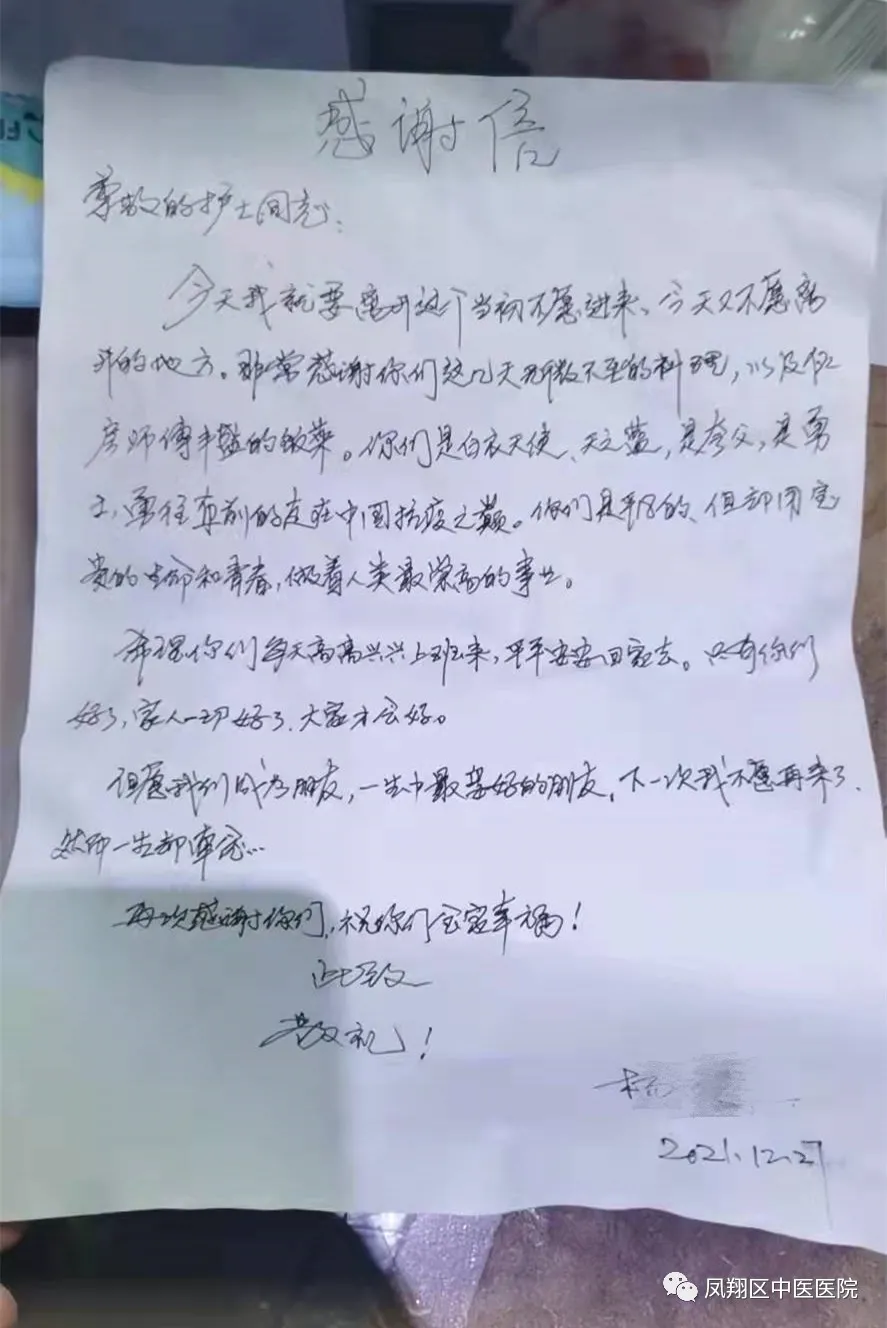 感谢信
尊敬的护士同志：
今天我就要离开这个当初不愿进来、今天又不愿离
开的地方。非常感谢你们这几天无微不至的料理，以及
房师傅丰盛的饭菜。你们是白衣天使、天之蓝，是夸父，是勇
士，勇往直前的走在中国抗疫之巅。你们是平凡的、但却用宝
贵的生命和青春，做着人类最崇高的事业。
希望你们每天高高兴兴上班来，平平安安回家去。只有你们
好了，家人一切好了、大家才会好。
但愿我们成为朋友，一生中最要好的朋友，下一次我不愿再来了，
然而一生却牵念…
再次感谢你们，祝你们全家幸福！
此致
敬礼！
杨
2021.12.27
凤翔区中医医院